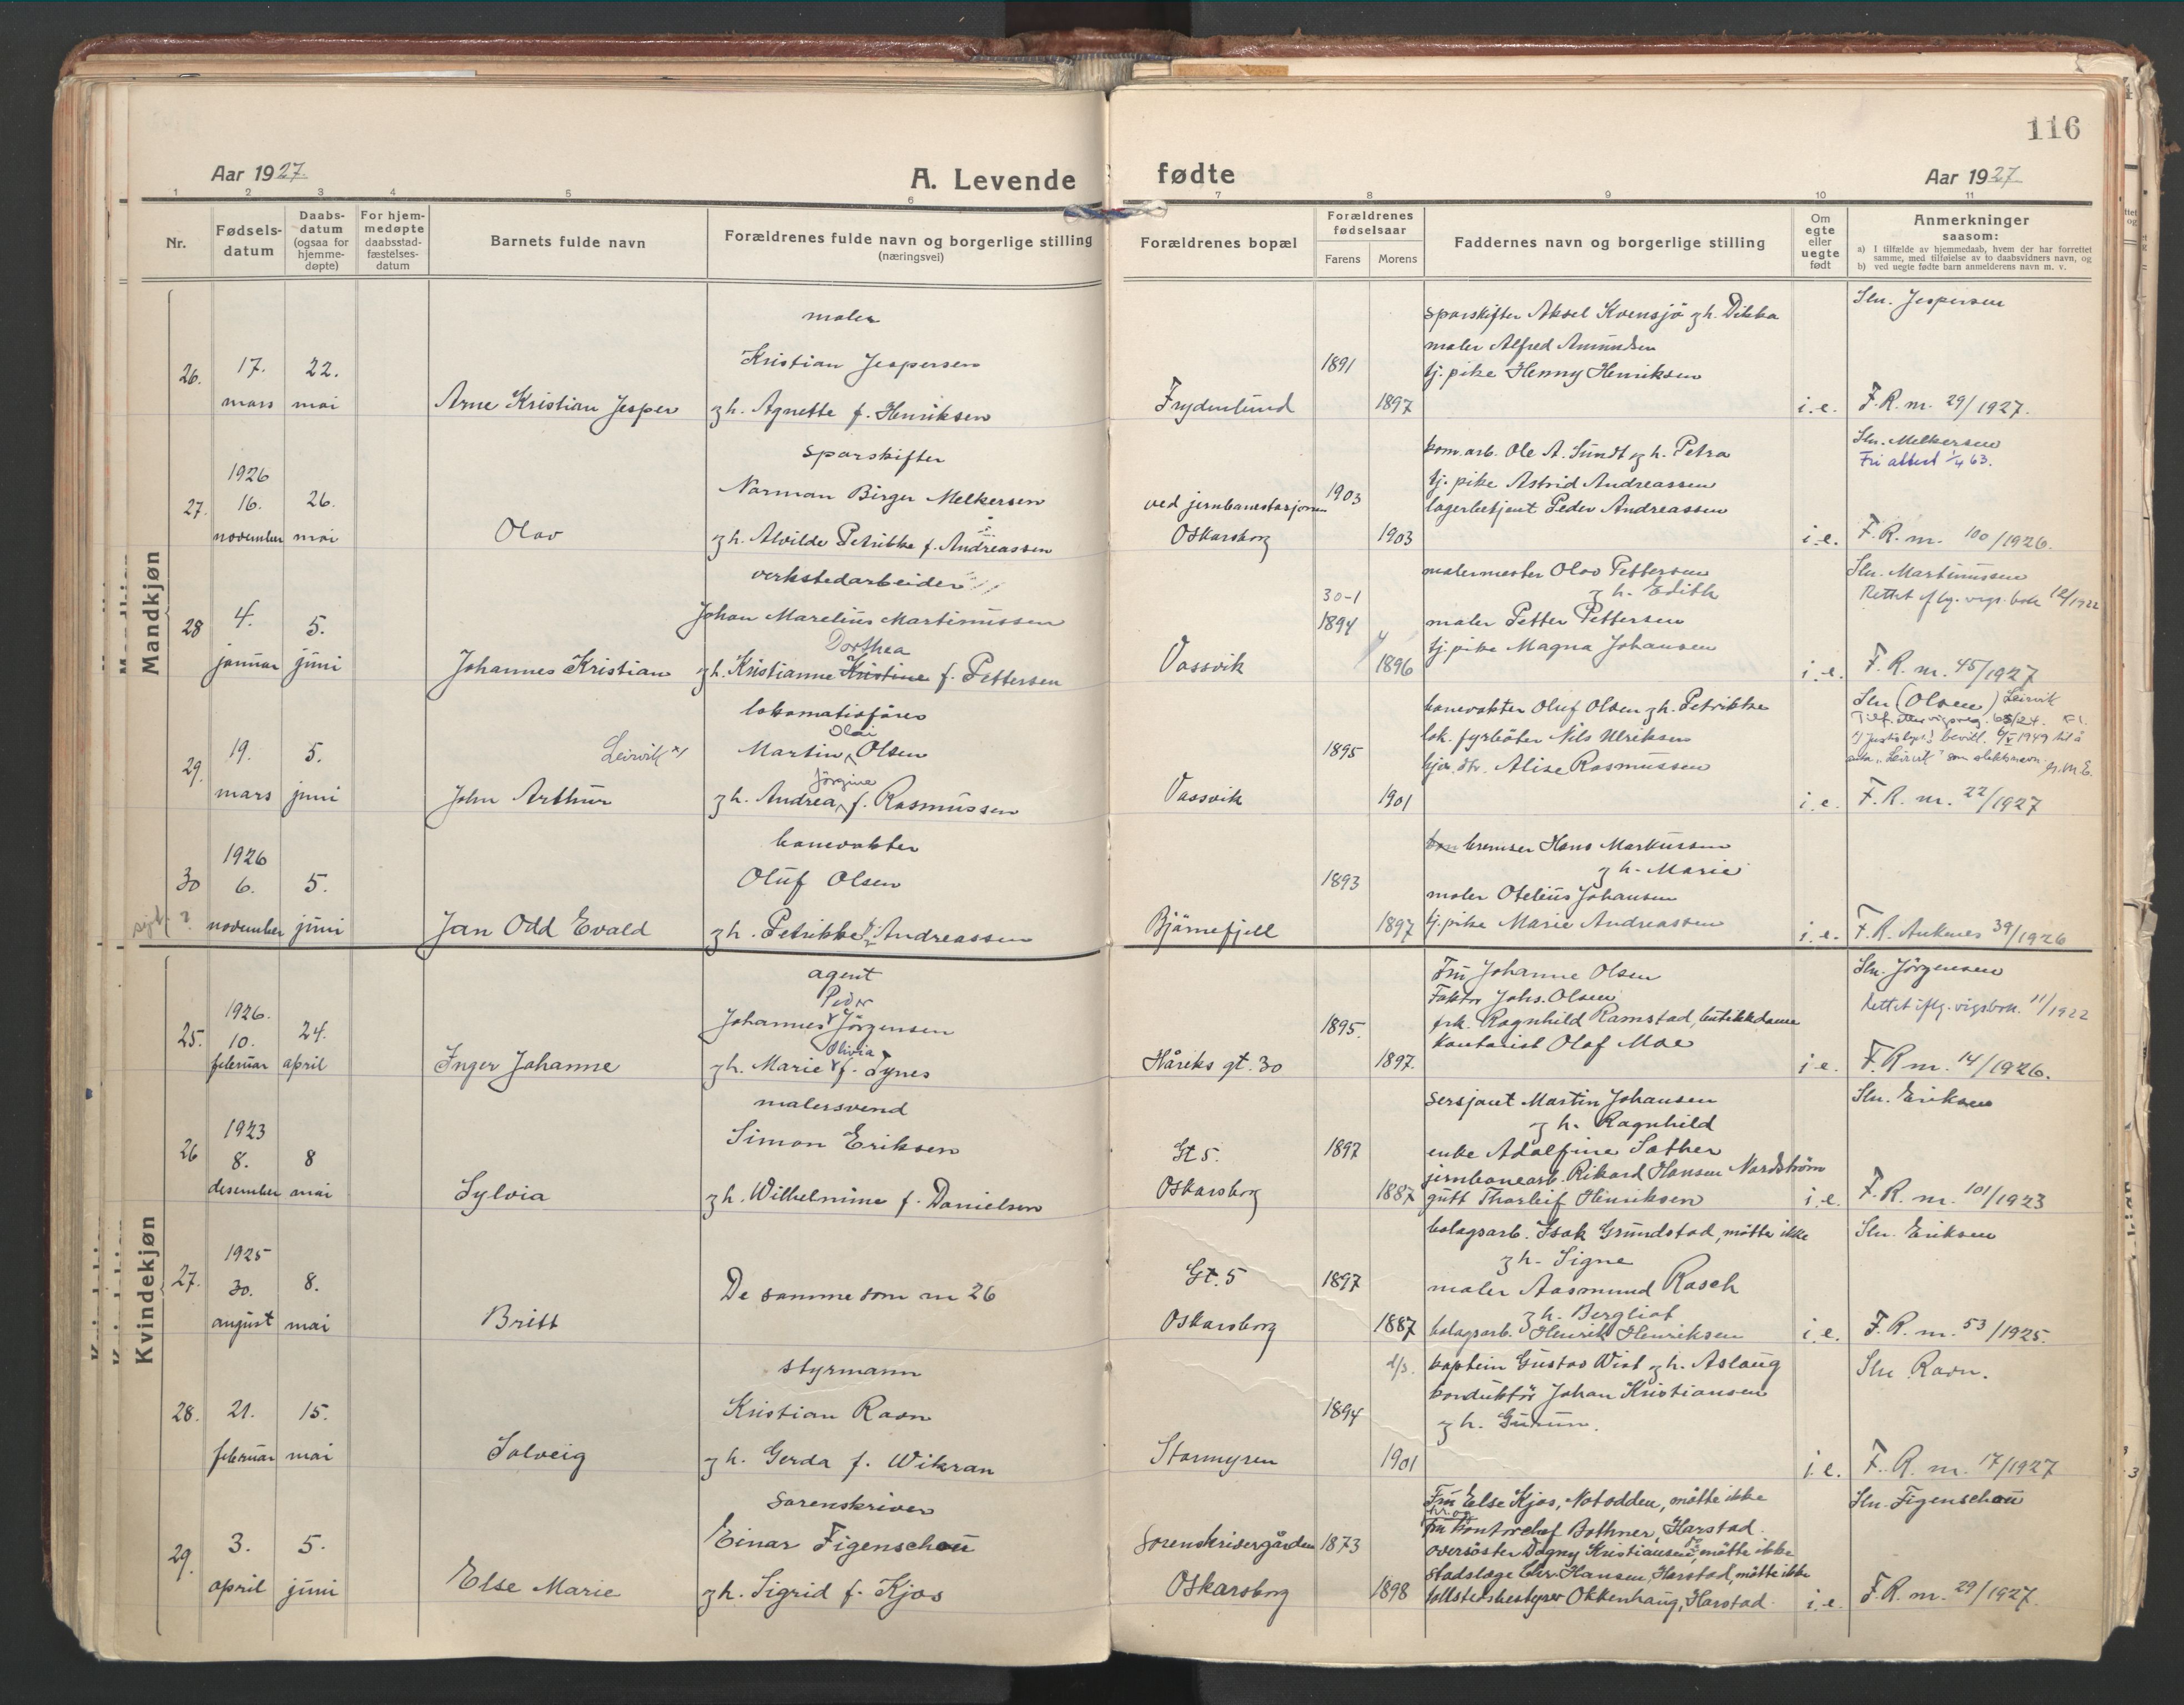 116
Aar 1927.
A. Levende
fødte
Aar 1927
1 2 3 4 5 6 7 8 9 10 11
Nr.
Fødsels-
datum
Daabs-
datum
(ogsaa for
hjemme-
døpte)
For hjem-
medøpte
daabsstad-
fæstelses-
datum
Barnets fulde navn
Forældrenes fulde navn og borgerlige stilling
(næringsvei)
Forældrenes bopæl
Forældrenes
fødselsaar
Farens Morens
Faddernes navn og borgerlige stilling
Om
egte
eller
uegte
født
Anmerkninger
saasom:
a) I tilfælde av hjemmedaab, hvem der har forrettet
samme, med tilføielse av to daabsvidners navn, og
b) ved uegte fødte barn anmelderens navn m. v.
Mandkjøn
26.
17.
mars
22.
mai
Arne Kristian Jesper
maler
Kristian Jespersen
og h. Agnette f. Henriksen
Frydenlund
1891
1897
sporskifter Aksel Kvensjö og h. Dikka
maler Alfred Amundsen
tj. pike Henny Henriksen
i.e.
Sln. Jespersen
F.R. nr. 29/1927.
27.
1926
16.
november
26.
mai
Olav
sporskifter
Norman Birger Melkersen
og h. Alvilde Petrikke f. Andreassen
ved jernbanestasjonen
Oskarsborg
1903
1903
kom. arb. Ole A. Sundt og h. Petra
tj. pike Astrid Andreassen
lagerbetjent Peder Andreassen
i.e.
Sln. Melkersen
Fri attest 1/4 63.
F.R. nr. 100/1926.
28
4.
januar
5.
juni
Johannes Kristian
verkstedarbeider
Johan Marelius Martinussen
Dorthea
og h. Kristianne Kristine f. Pettersen
Vassvik
30-1
1894
1896
malermester Olav Pettersen
og h. Edith
maler Petter Pettersen
tj. pike Magna Johansen
i.e.
Sln. Martinussen
Rettet iflg. vigs. bok 12/1922
F.R. nr. 45/1927
29.
19.
mars
5.
juni
Leirvik x)
John Arthur
lokomotivförer
Olai
Martin Olsen
Jörgine
og h. Andrea f. Rasmussen
Vassvik
1895
1901
banevokter Oluf Olsen og h. Petrikke
lok. fyrböter Nils Ulriksen
hjv. dtr. Alise Rasmussen
i.e.
Sln (Olsen) Leirvik
x) Justisdept.s bevill. 1949 til å
anta "Leirvik" som slektsnavn.
F.R. nr. 22/1927
30
1926
6.
november
5.
juni
Jan Odd Evald
banevokter
Oluf Olsen
og h. Petrikke f. Andreassen
Björnefjell
1893
1897
bremser Hans Markussen
og h. Marie
maler Otelius Johansen
tj. pike Marie Andreassen
i.e.
F.R. Ankenes 39/1926
Kvindekjøn
25.
1926.
10.
februar
24.
april
Inger Johanne
agent
Peder
Johannes Jörgensen
Olivia
og h. Marie f. Tynes
Håreks gt. 30
1895.
1897.
Fru Johanne Olsen
Faktor Johs. Olsen
frk. Ragnhild Ramstad, butikkdame
Kontorist Olaf Moe
i.e.
Sln. Jörgensen
Rettet iflg. vigsbok. 11/1922
F.R nr. 14/1926.
26
1923
8.
desember
8
mai
Sylvia
malersvend
Simon Eriksen
og h. Wilhelmine f. Danielsen
Gt 5.
Oskarsborg
1897
1887
Sersjant Martin Johansen
og h. Ragnhild
enke Adolfine Sæther
jernbanearb. Rikard Hansen Nordström
gutt Thorleif Henriksen
i.e.
Sln. Eriksen
F.R. nr. 101/1923
27.
1925
30.
august
8.
mai
Britt
De samme som nr 26
Gt. 5
Oskarsborg
1897
1887
bolagsarb. Isak Grundstad, mötte ikke
og h. Signe
maler Aasmund Rasch
og h. Bergliot
bolagsarb. Henrik Henriksen
i.e.
Sln. Eriksen
F.R. nr. 53/1925.
28.
21.
februar
15.
mai
Solveig
styrmann
Kristian Ravn
og h. Gerda f. Wikran
Stormyren
1894
1901
d/s. kaptein Gustav Wist og h. Aslaug
konduktör Johan Kristiansen
og h. Gudrun.
i.e.
Sln Ravn.
F.R. nr. 17/1927
29.
3.
april
5.
juni
Else Marie
Sorenskriver
Einar Figenschou
og h. Sigrid f. Kjos
Sorenskrivergården
Oskarsborg
1873
1898
Fru Else Kjos, Notodden, mötte ikke
hr. og
fru Kontorchef Bothner, Harstad.
oversöster Dagny Kristiansen, mötte ikke
Stadslæge Chr. Hansen, Harstad, mötte ikke
tollstedsbestyrer Okkenhaug, Harstad.
i.e.
Sln. Figenschou
F.R. nr. 29/1927.